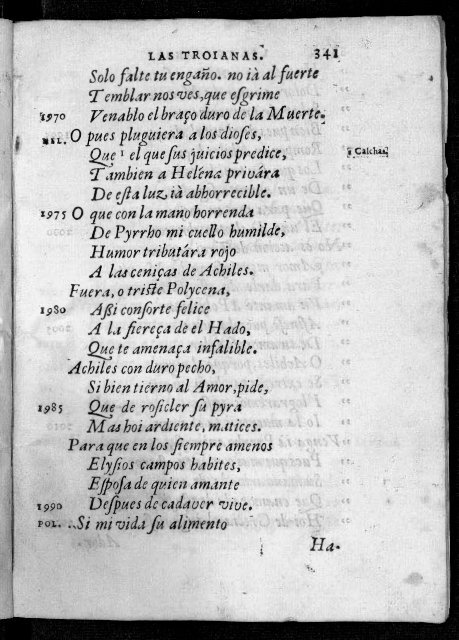 LAS TROIANAS. 341
Solo falte tu engaño. no ià al fuerte
Temblar nos ves, que esgrime
1970 Venablo el braço duro de la Muerte.
HEL. O pues pluguiera a los dioses,
Que ¹ el que sus juicios predice, ¹ Calchas.
Tambien a Helena privára
De esta luz ià abhorrecible.
1975 O que con la mano horrenda
De Pyrrho mi cuello humilde,
Humor tributára rojo
A las ceniças de Achiles.
Fuera, o triste Polycena,
1980 Assi consorte felice
A la fiereça de el Hado,
Que te amenaça infalible.
Achiles con duro pecho,
Si bien tierno al Amor, pide,
1985 Que de rosicler su pyra
Mas hoi ardiente, matices.
Para que en los siempre amenos
Elysios campos habites,
Esposa de quien amante
1990 Despues de cadaver vive.
POL. Si mi vida su alimento
Ha-